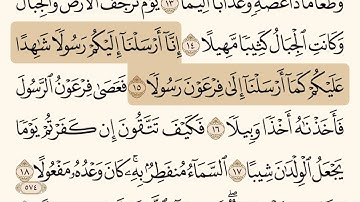 وَطَعَامًا ذَا غُصَّةٍ وَعَذَابًا أَلِيمًا ١٣ يَوْمَ تَرْجُفُ ٱلْأَرْضُ وَٱلْجِبَالُ
وَكَانَتِ ٱلْجِبَالُ كَثِيبًا مَّهِيلًا ١٤ إِنَّآ أَرْسَلْنَآ إِلَيْكُمْ رَسُولًا شَٰهِدًا
عَلَيْكُمْ كَمَآ أَرْسَلْنَآ إِلَىٰ فِرْعَوْنَ رَسُولًا ١٥ فَعَصَىٰ فِرْعَوْنُ ٱلرَّسُولَ
فَأَخَذْنَٰهُ أَخْذًا وَبِيلًا ١٦ فَكَيْفَ تَتَّقُونَ إِن كَفَرْتُمْ يَوْمًا
يَجْعَلُ ٱلْوِلْدَٰنَ شِيبًا ١٧ ٱلسَّمَآءُ مُنفَطِرٌۢ بِهِۦ ۚ كَانَ وَعْدُهُۥ مَفْعُولًا ١٨
٥٧٤